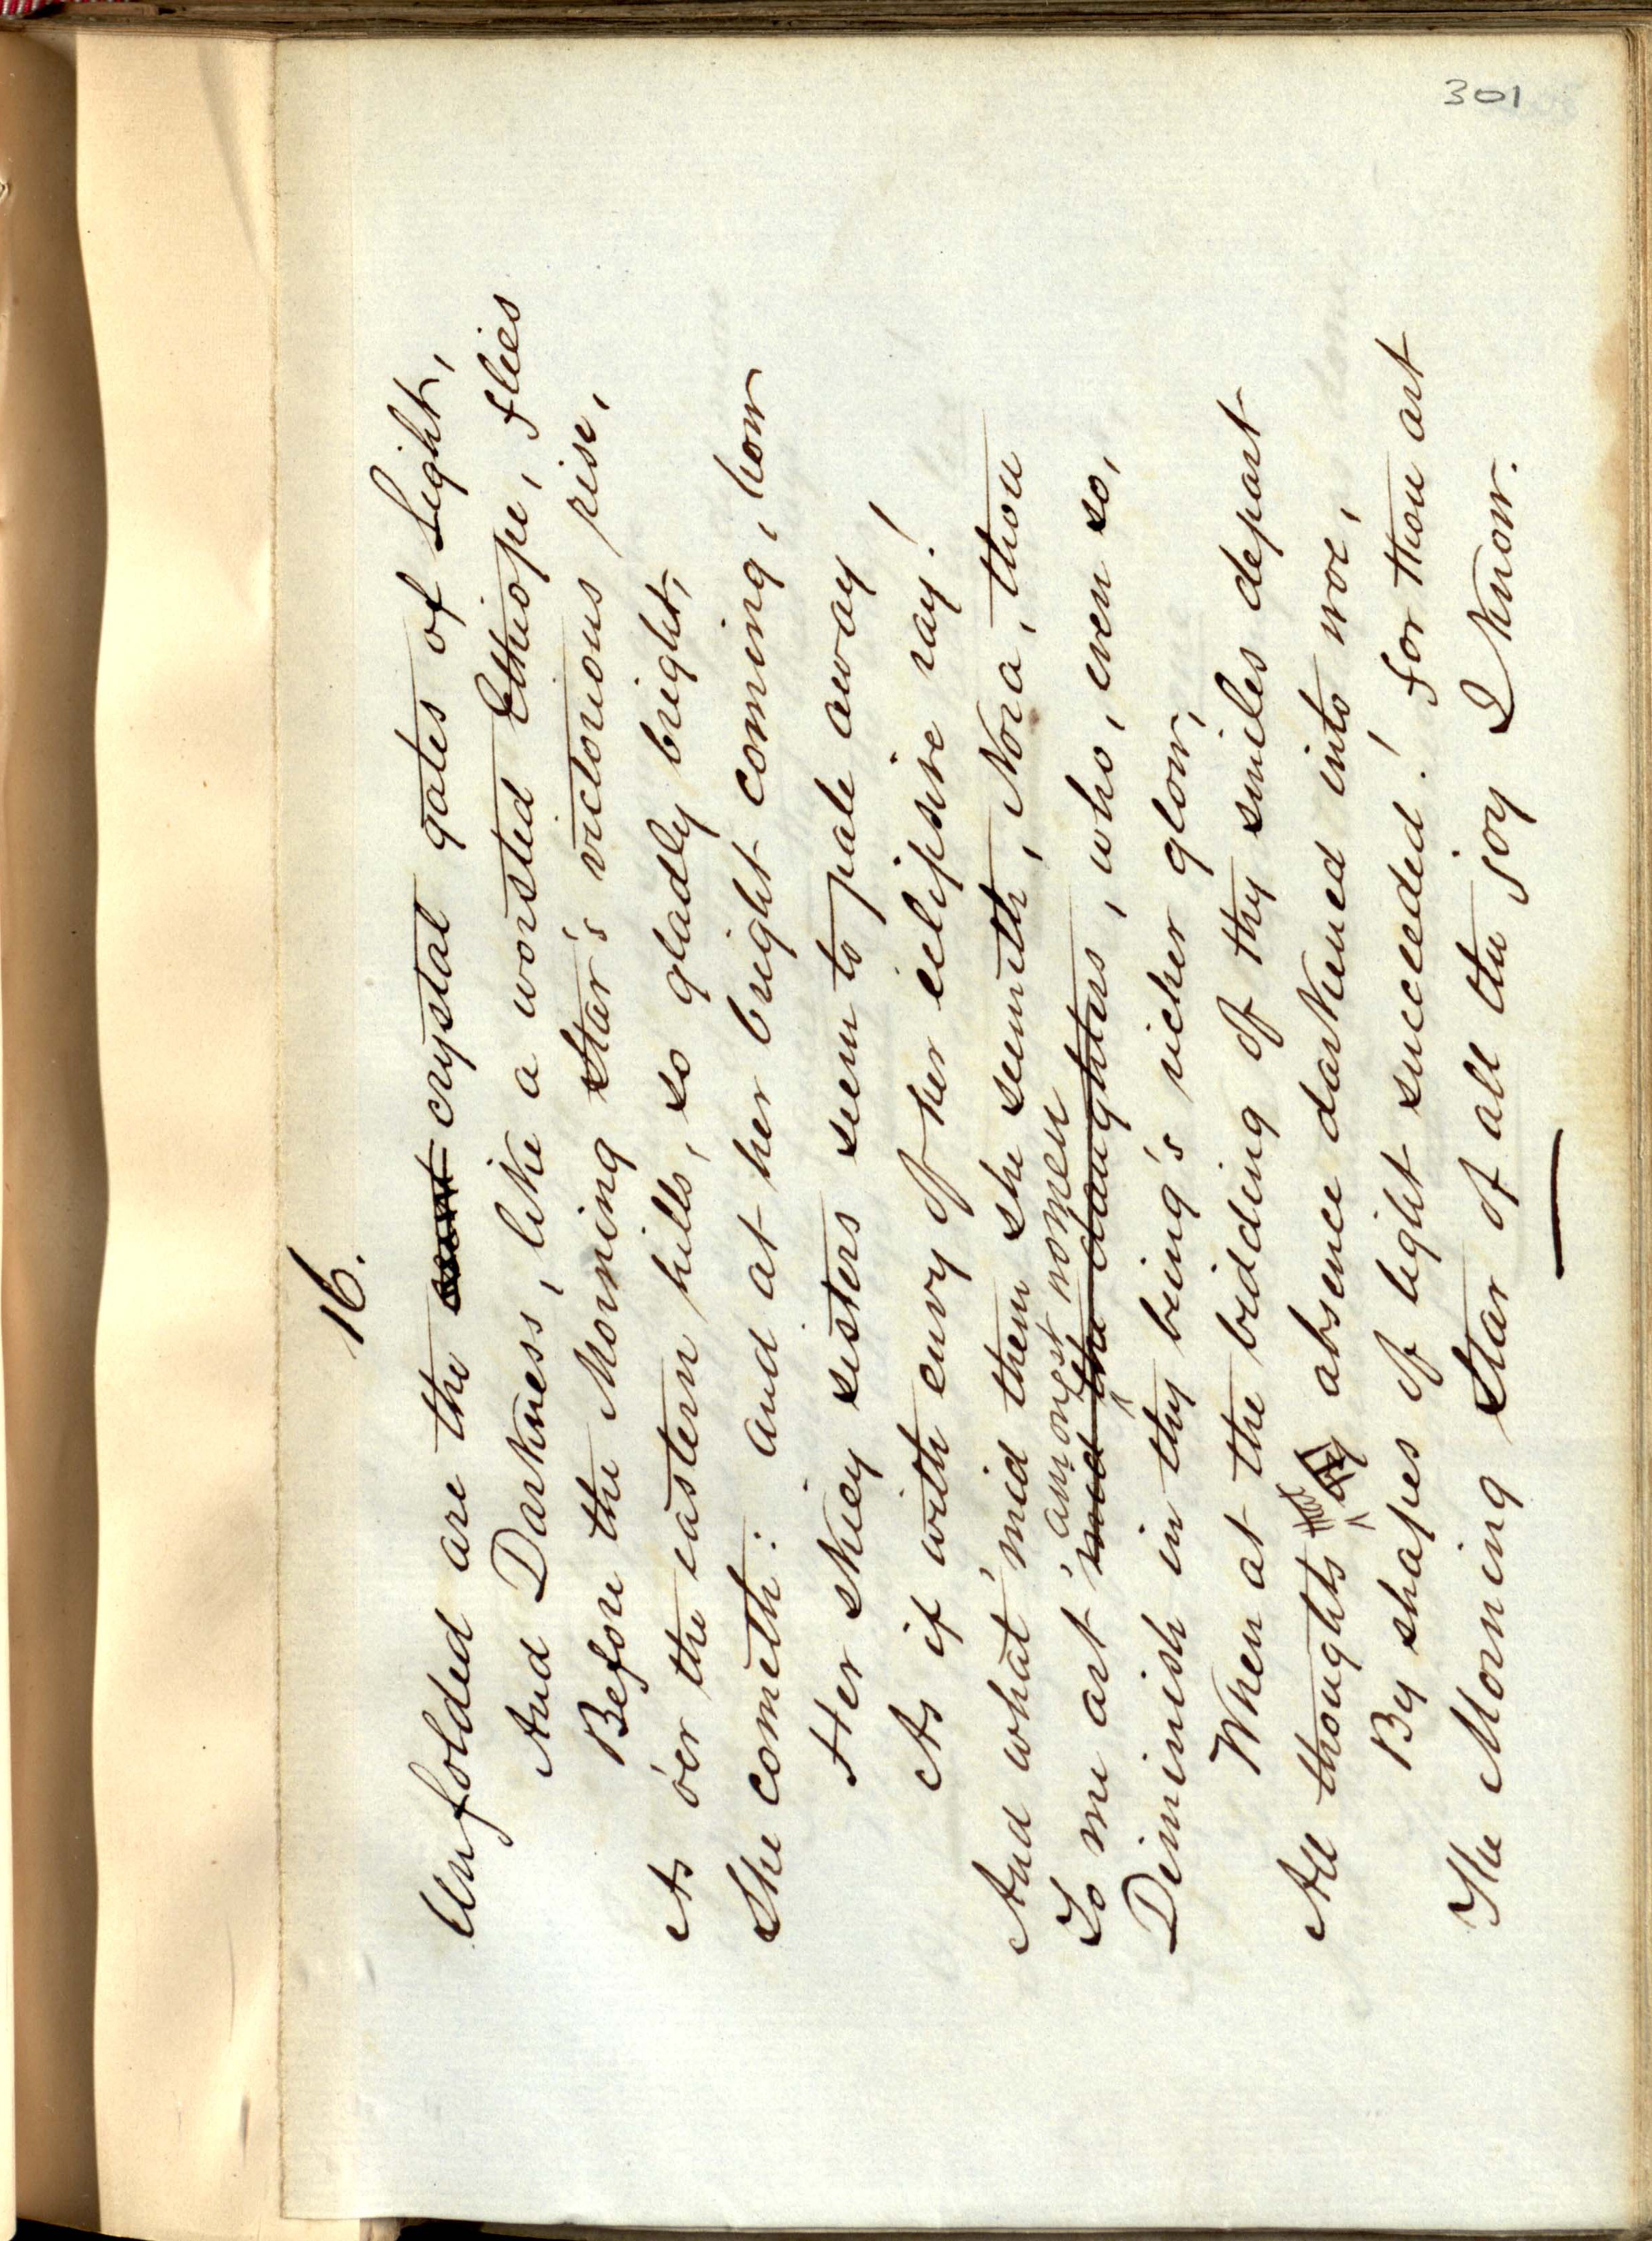 301
16.
Unfolded are the crystal gates of Light,
And Darkness, like a worsted Ethiope, flies
Before the Morning Star's victorious rise,
As o'er the eastern hills, so gladly bright,
She cometh: and at her bright coming, how
Her skiey sisters seem to pale away
As if with envy of her eclipsive ray!
And what 'mid them she seemeth, Nora, thou
amongst women
To me art 'mid the daughters, who, even so,
Diminish in thy being's richer glow,
When at the bidding of thy smiles depart
All thoughts by absence darkened into woe,
By shapes of light succeeded! for thou art
The Morning Star of all the joy I know.